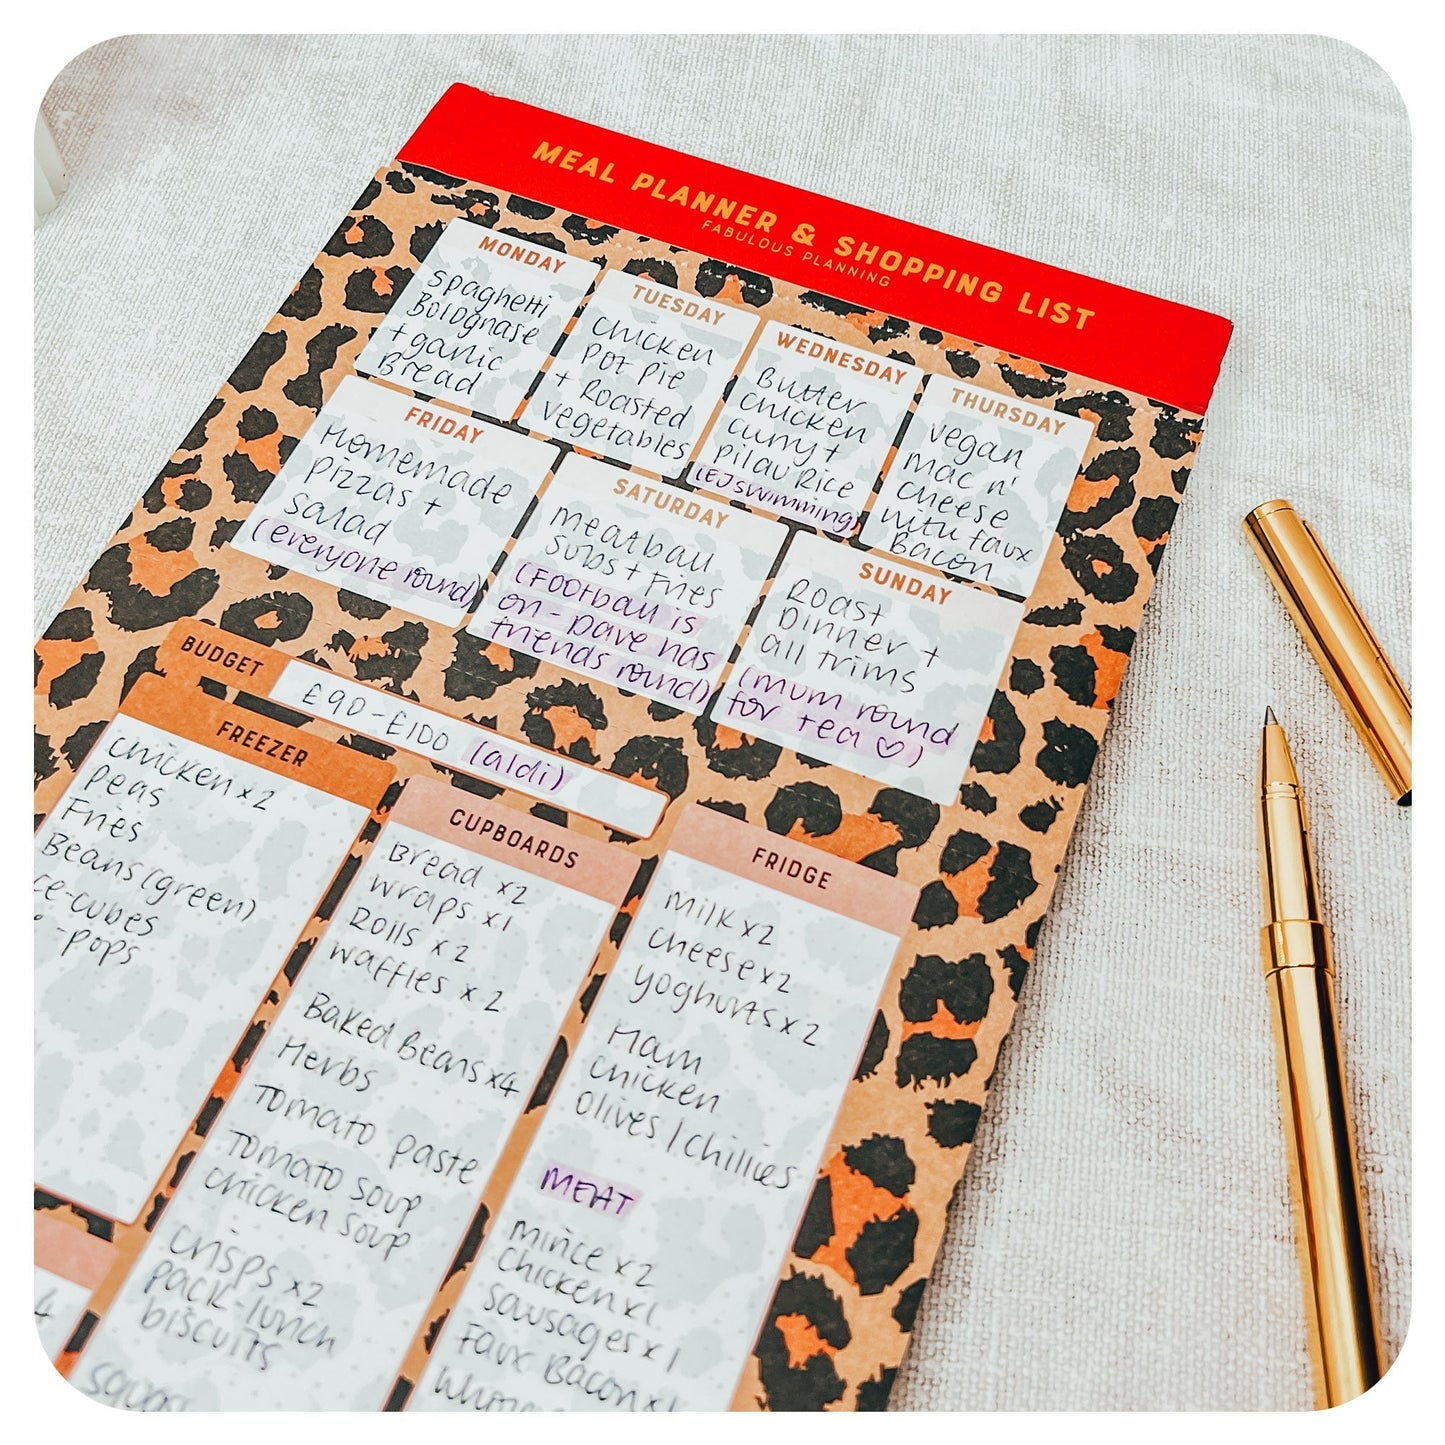 MEAL PLANNER & SHOPPING LIST
FABULOUS PLANNING
MONDAY
Spaghetti
Bolognase
+ garlic
Bread
TUESDAY
Chicken
Pot Pie
+ Roasted
vegetables
WEDNESDAY
Butter
chicken
curry +
Pilau Rice
(EJ swimming)
THURSDAY
vegan
mac n'
cheese
with faux
Bacon
FRIDAY
Homemade
Pizzas +
Salad
(everyone round)
SATURDAY
Meatball
Subs + Fries
(Football is
on - Dave has
friends round)
SUNDAY
Roast
Dinner +
all trims
(mum round
for tea ♡)
BUDGET
£90 - £100 (aldi)
FREEZER
chicken x 2
Peas
Fries
Beans (green)
ce-cubes
-pops
4
CUPBOARDS
Bread x2
wraps x1
Rolls x 2
waffles x 2
Baked Beans x4
Herbs
Tomato paste
Tomato soup
chicken soup
crisps x2
pack-lunch
biscuits
FRIDGE
milk x2
cheese x2
yoghurts x 2
Ham
chicken
olives / chillies
MEAT
mince x 2
chicken x1
sausages x 1
Faux Bacon x1